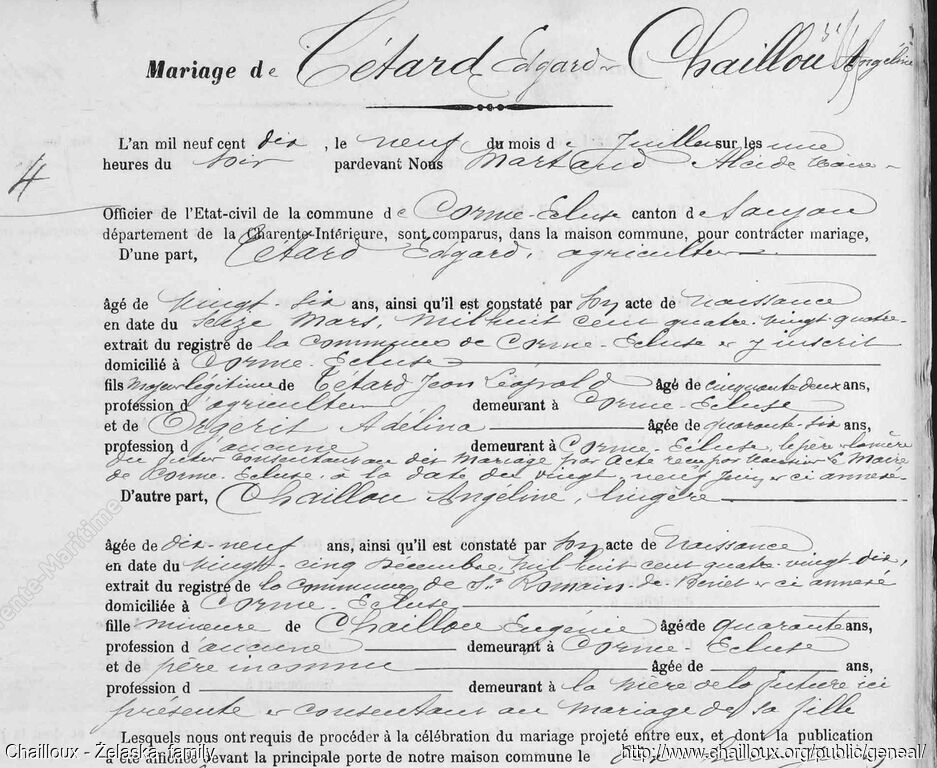 Mariage de Tétard Edgard & Chaillou Angeline
L'an mil neuf cent dix, le neuf du mois de Juillet sur les une
heures du soir pardevant Nous Martaud Alcide Maire
4
Officier de l'Etat-civil de la commune de Corme-Ecluse canton de Saujon
département de la Charente-Inférieure, sont comparus, dans la maison commune, pour contracter mariage,
D'une part, Tétard Edgard, agriculteur
âgé de vingt-six ans, ainsi qu'il est constaté par son acte de naissance
en date du seize Mars, mil huit cent quatre-vingt-quatre
extrait du registre de la commune de Corme-Ecluse & y inscrit
domicilié à Corme-Ecluse
fils majeur légitime de Tétard Jean Léopold âgé de cinquante deux ans,
profession d'agriculteur demeurant à Corme-Ecluse
et de Orgerit Adélina âgée de quarante-six ans,
profession d'aucune demeurant à Corme-Ecluse, le père & la mère
du futur consentant au dit Mariage par acte reçu par Monsieur le Maire
de Corme-Ecluse à la date du vingt neuf Juin & ci annexé
D'autre part, Chaillou Angeline, lingère
âgée de dix-neuf ans, ainsi qu'il est constaté par son acte de Naissance
en date du vingt-cinq Décembre, mil huit cent quatre-vingt dix,
extrait du registre de la commune de St Romain-de-Benet & ci annexé
domiciliée à Corme-Ecluse
fille mineure de Chaillou Eugénie âgée de quarante ans,
profession d'aucune demeurant à Corme-Ecluse
et de père inconnu âgée de ans,
profession d demeurant à la mère de la future ici
présente & consentant au mariage de sa fille
Lesquels nous ont requis de procéder à la célébration du mariage projeté entre eux, et dont la publication
a été affichée devant la principale porte de notre maison commune le
Chailloux - Żelaska family
http://www.chailloux.org/public/geneal/
ente-Maritime